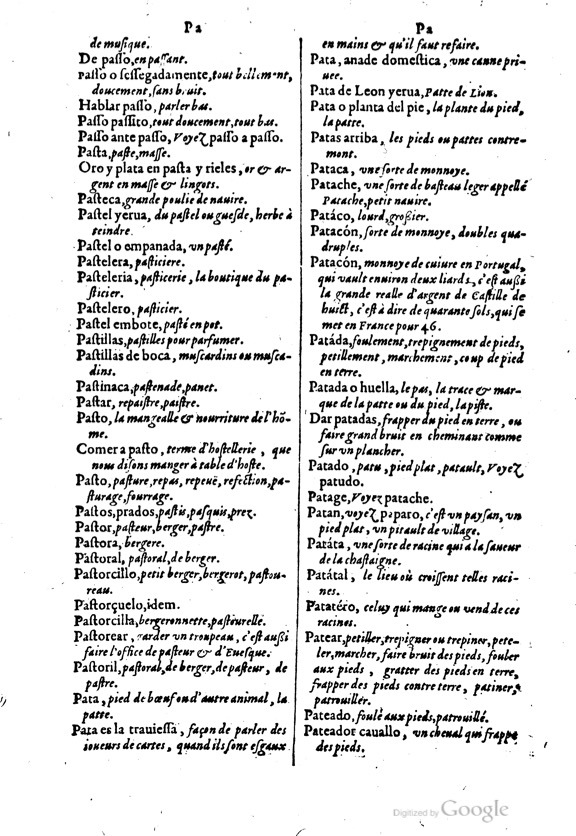 Pa
de musique.
De passo, en passant.
Passo o sessegadamente, tout bellement,
doucement, sans bruit.
Hablar passo, parler bas.
Passo passito, tout doucement, tout bas.
Passo ante passo, Voyez passo a passo.
Pasta, paste, masse.
Oro y plata en pasta y rieles, or & ar-
gent en masse & lingots.
Pasteca, grande poulie de nauire.
Pastel yerua, du pastel ou guesde, herbe à
teindre.
Pastel o empanada, vn pasté.
Pastelera, pasticiere.
Pasteleria, pasticerie, la boutique du pa-
sticier.
Pastelero, pasticier.
Pastel embote, pasté en pot.
Pastillas, pastilles pour parfumer.
Pastillas de boca, muscardins ou musca-
dins.
Pastinaca, pastenade, panet.
Pastar, repaistre, paistre.
Pasto, la mangealle & nourriture de l'hõ-
me.
Comer a pasto, terme d'hostellerie, que
nous disons manger à table d'hoste.
Pasto, pasture, repas, repeuë, refection, pa-
sturage, fourrage.
Pastos, prados, pastis, pasquis, prez.
Pastor, pasteur, berger, pastre.
Pastora, bergere.
Pastoral, pastoral, de berger.
Pastorcillo, petit berger, bergerot, pastou-
reau.
Pastorçuelo, idem.
Pastorcilla, bergeronnette, pastourelle.
Pastorear, garder un troupeau, c'est aussi
faire l'office de pasteur & d'Euesque.
Pastoril, pastoral, de berger, de pasteur, de
pastre.
Pata, pied de bœuf ou d'autre animal, la
patte.
Pata es la trauiessa, façon de parler des
ioueurs de cartes, quand ils sont esgaux
Pa
en mains & qu'il faut refaire.
Pata, anade domestica, vne canne pri-
uee.
Pata de Leon yerua, Patte de Lion.
Pata o planta del pie, la plante du pied,
la patte.
Patas arriba, les pieds ou pattes contre-
mont.
Pataca, vne sorte de monnoye.
Patache, vne sorte de basteau leger appellé
Patache, petit nauire.
Patáco, lourd, grossier.
Patacón, sorte de monnoye, doubles qua-
druples.
Patacón, monnoye de cuiure en Portugal,
qui vault enuiron deux liards, c'est aussi
la grande realle d'argent de Castille de
huict, c'est à dire de quarante sols, qui se
met en France pour 46.
Patáda, foulement, trepignement de pieds,
petillement, marchement, coup de pied
en terre.
Patada o huella, le pas, la trace & mar-
que de la patte ou du pied, la piste.
Dar patadas, frapper du pied en terre, ou
faire grand bruit en cheminant comme
sur vn plancher.
Patado, patu, pied plat, patault, Voyez
patudo.
Patage, Voyez patache.
Patan, voyez paparo, c'est vn paysan, vn
pied plat, vn pitault de village.
Patáta, vne sorte de racine qui a la saueur
de la chastaigne.
Patátal, le lieu où croissent telles raci-
nes.
Patatéro, celuy qui mange ou vend de ces
racines.
Patear, petiller, trepigner ou trepiner, pete-
ler, marcher, faire bruit des pieds, fouler
aux pieds, gratter des pieds en terre,
frapper des pieds contre terre, patiner,
patrouiller.
Pateado, foulé aux pieds, patrouillé.
Pateador cauallo, vn cheual qui frappe
des pieds.
Digitized by Google